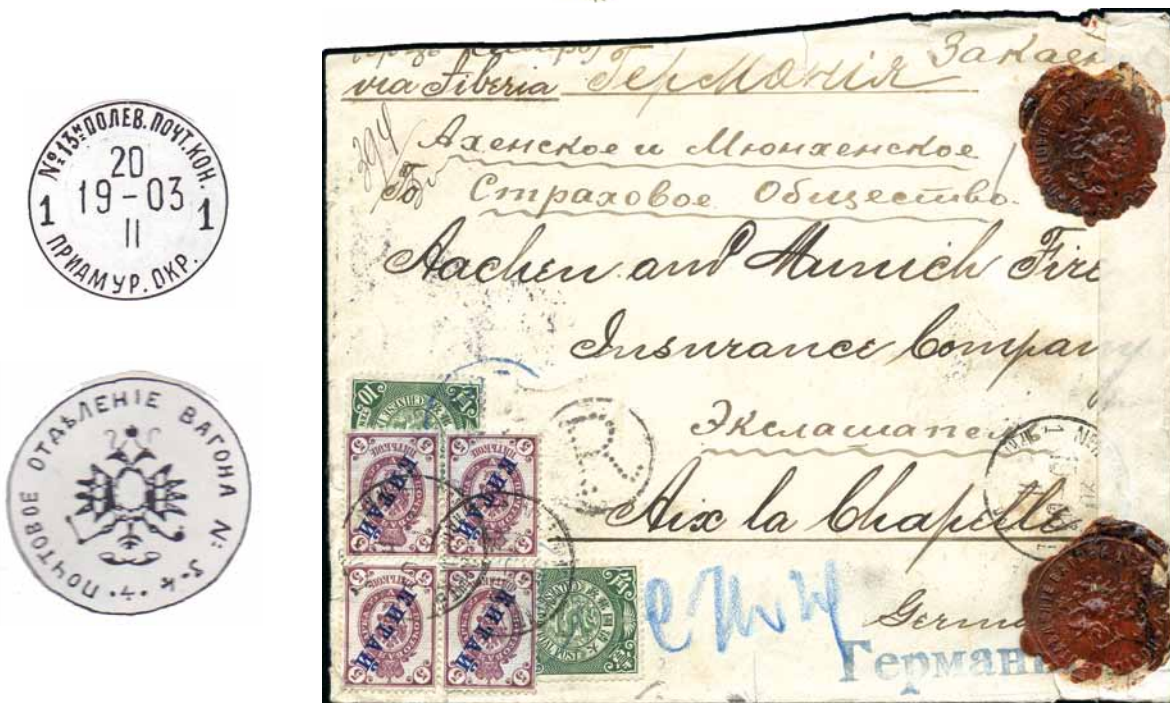 № 13й ПОЛЕВ. ПОЧТ. КОН.
20
19-03
II
1 1
ПРИАМУР. ОКР.
ПОЧТОВОЕ ОТДѢЛЕНІЕ ВАГОНА №: 3-4
via Siberia Германія
394
Ахенское и Мюнхенское
To Страховое Общество.
Aachen and Munich Fire
Insurance Company
Экслашапел
Aix la Chapelle
Germa
Герман
R
10
5 5 5 5
КИТАЙ КИТАЙ
КИТАЙ КИТАЙ